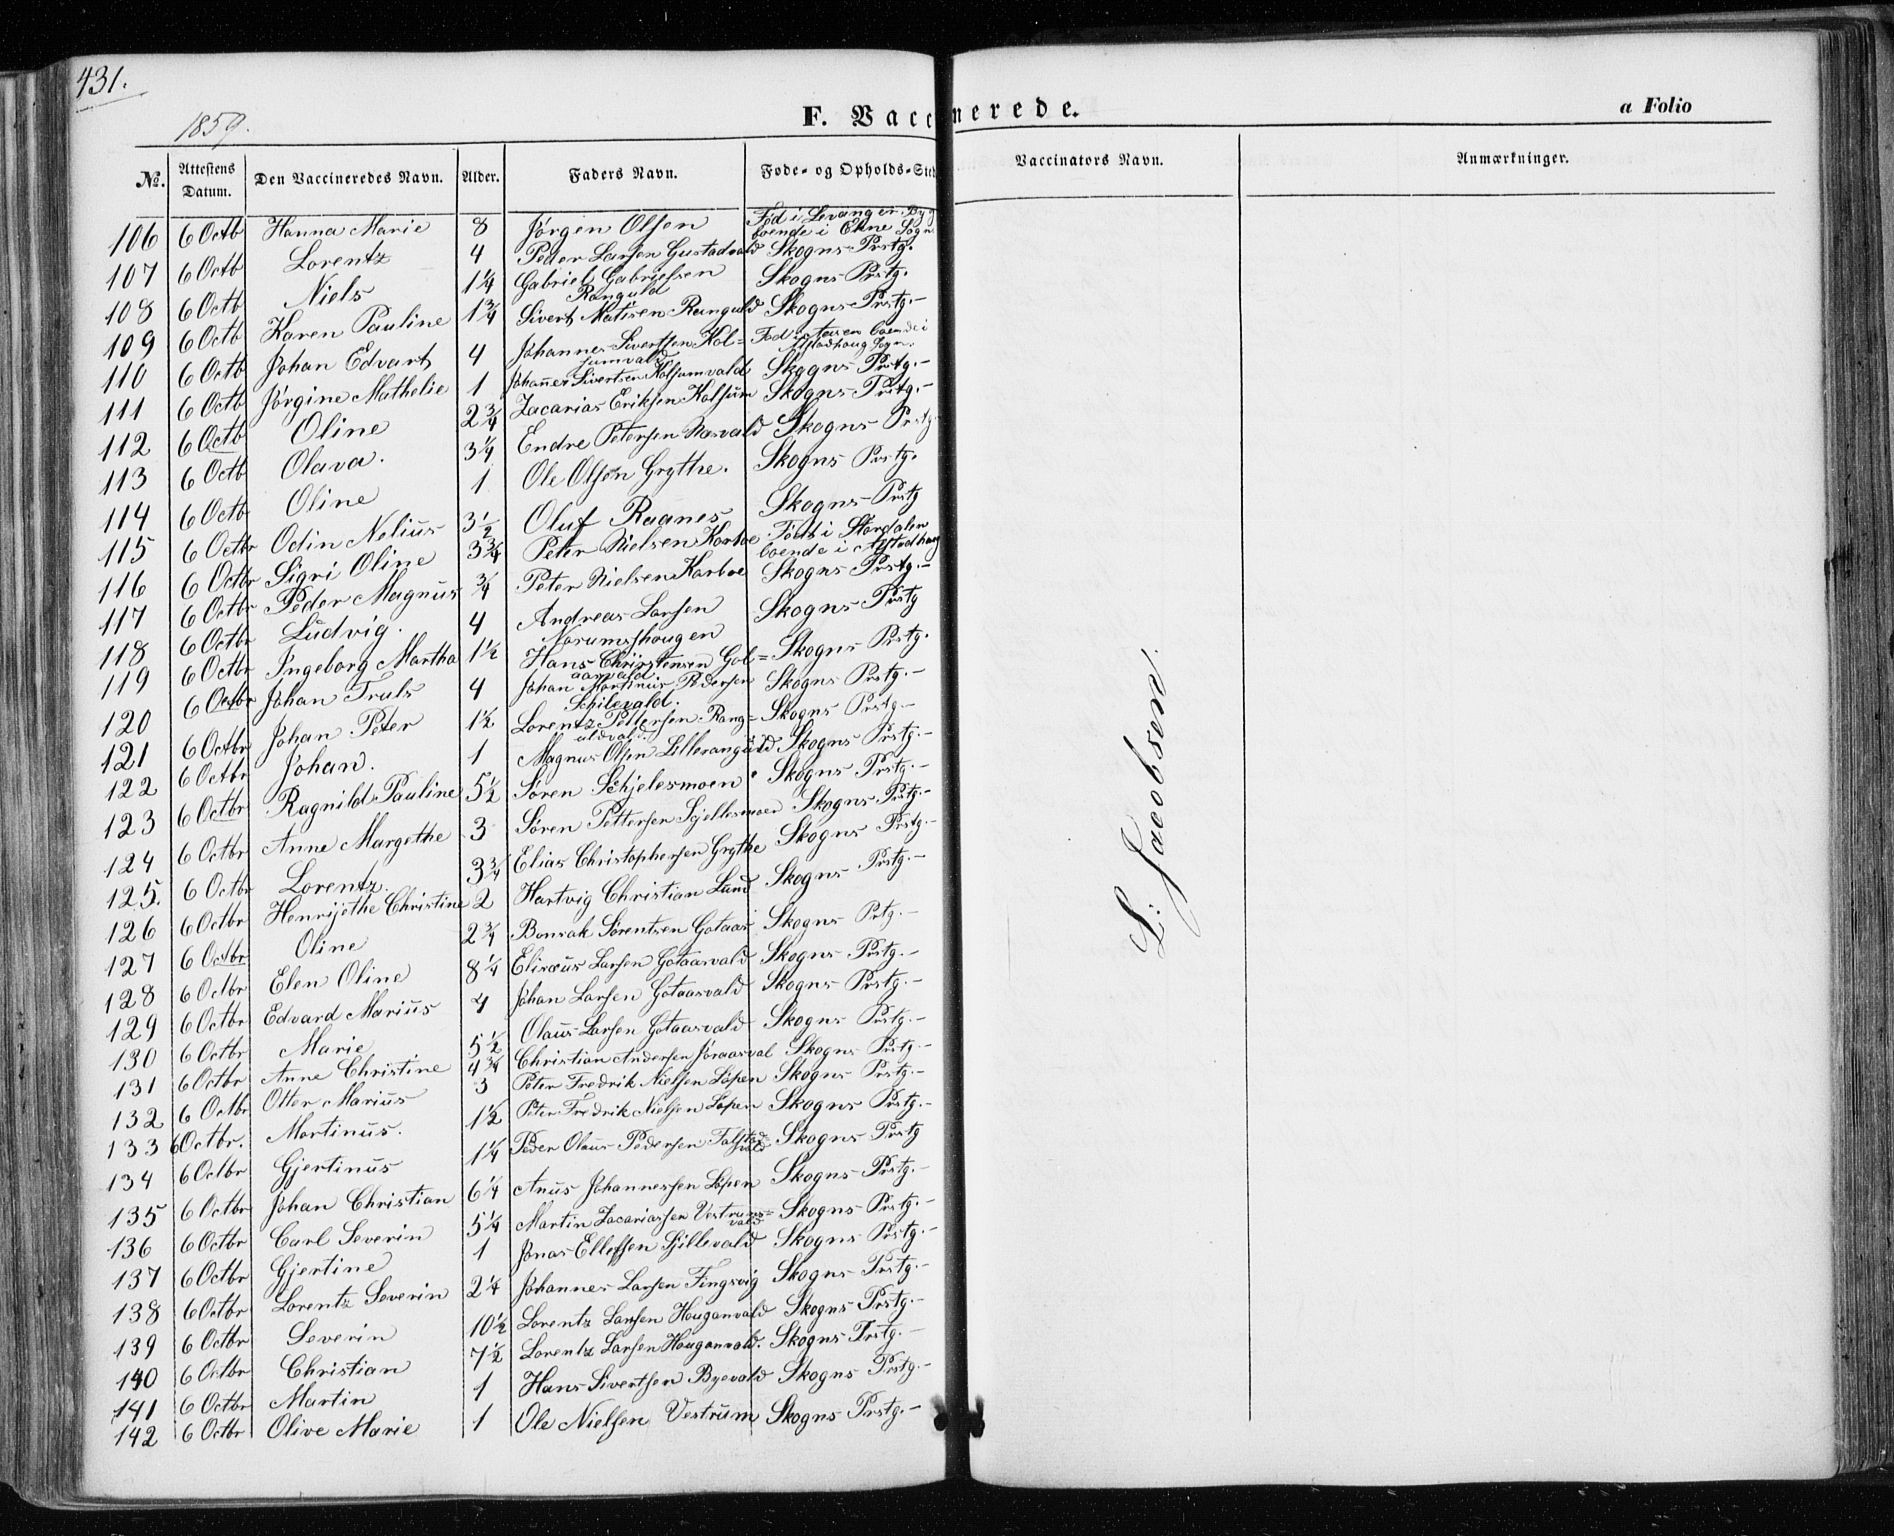 431.
1859.
F. Vaccinerede.
a Folio
No. Attestens Datum. Den Vaccineredes Navn. Alder. Faders Navn. Føde- og Opholds-Sted Vaccinators Navn. Anmærkninger.
106 6 Octb Hanna Marie 8 Jörgen Olsen Fød i Levanger By boende i Ekne Sogn
107 6 Octb Lorentz 4 Peder Larsen Gustadvald Skogns Prstg.
108 6 Octb Niels 1¼ Gabriel Gabrielsen Ranguld Skogns Prstg.
109 6 Octb Karen Pauline 1¾ Sivert Matisen Ranguld Skogns Prstg.-
110 6 Octb Johan Edvart 4 Johannes Sivertsen Kolsumvald Fød i Aasen boende i Alstadhoug Sogn.
111 6 Octb Jörgine Mathelie 1 Johannes Sivertsen Kolsumvald Skogns Prstg.-
112 6 Octb Oline 2¾ Zacarias Eriksen Kolsum Skogns Prstg.-
113 6 Octb Olava. 3¼ Endre Petersen Næsvald Skogns Prstg
114 6 Octb Oline 1 Ole Olsen Grythe. Skogns Prstg.
115 6 Octbr Odin Nelius 3½ Oluf Raanes Skogns Prstg
116 6 Octbr Sigri Oline 3¾ Peter Nielsen Karboe Født i Stordalen boende i Alstadhaug
117 6 Octbr Peder Magnus ¾ Peter Nielsen Karboe Skogns Prstg.-
118 6 Octbr Ludvig. 4 Andreas Larsen Norumshougen Skogns Prstg
119 6 Octbr Ingeborg Martha 1½ Hans Christensen Gotaarvald. Skogns Prstg.
120 6 Octbr Johan Truls 4 Johan Martinus Pedersen Schilevald. Skogns Prstg.-
121 6 Octbr Johan Peter 1½ Lorentz Pettersen Ranguldvald. Skogns Prstg.-
122 6 Octbr Johan. 1 Magnus Olsen Lilleranguld Skogns Prstg.-
123 6 Octbr Ragnild Pauline 5½ Søren Schjelesmoen Skogns Prstg.-
124 6 Octbr Anne Margethe 3 Søren Pettersen Sjellesmoen Skogns Prstg.-
125. 6 Octbr Lorentz. 3¾ Elias Christophersen Grythe Skogns Prstg.-
126 6 Octbr Henrijethe Christine 2 Hartvig Christian Lund Skogns Prstg.-
127 6 Octbr Oline 2¾ Bonsak Sørentsen Gotaas Skogns Prtg.-
128 6 Octbr Elen Oline 8¼ Elisæus Larsen Gotaasvald Skogns Prstg.-
129 6 Octbr Edvard Marius 4 Johan Larsen Gotaasvald Skogns Prstg.-
130 6 Octbr Marie 5½ Olaus Larsen Gotaasvald Skogns Prstg.-
131 6 Octbr Anne Christine 4¾ Christian Andersen Joraasval Skogns Prstg.-
132 6 Octbr Otter Marius 3 Peter Fredrik Nielsen Løpen Skogns Prstg.-
133 6 Octbr. Martinus. 1½ Peter Fredrik Nielsen Løpen Skogns Prstg.-
134 6 Octbr Gjertinus 1¼ Peder Olaus Pedersen Falstadvald Skogns Prstg
135 6 Octbr Johan Christian 6¼ Anus Johannessen Løpen Skogns Prstg.-
136 6 Octbr Carl Severin 5¼ Martin Zacariassen Vestrumsvald Skogns Prstg.-
137 6 Octbr Gjertine 1 Jonas Ellefsen Sjillevald Skogns Prstg.-
138 6 Octbr Lorentz Severin 2¼ Johannes Larsen Tingsvig Skogns Prstg.-
139 6 Octbr Severin 10½ Lorentz Larsen Houganvald Skogns Prstg.-
140 6 Octbr Christian 7½ Lorentz Larsen Houganvald. Skogns Prstg.-
141 6 Octbr Martin 1 Hans Sivertsen Byevald Skogns Prstg.-
142 6 Octbr Olive Marie 1 Ole Nielsen Vestrum Skogns Prstg.-
L: Jacobsen.